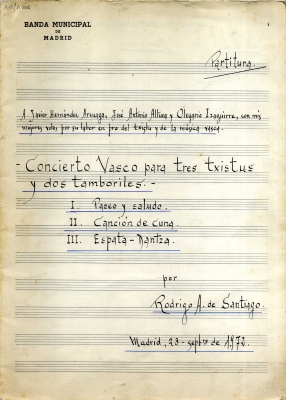 BANDA MUNICIPAL
DE
MADRID
Partitura.
A Javier Hernández Arsuaga, José Antonio Altuna y Olegario Izaguirre, con mis
mejores votos por su labor en pro del txistu y de la música vasca.
- Concierto Vasco para tres txistus
y dos tamboriles. -
I. Paseo y saludo.
II. Canción de cuna.
III. Espata-Dantza.
por
Rodrigo A. de Santiago.
Madrid, 23-septbre de 1972.